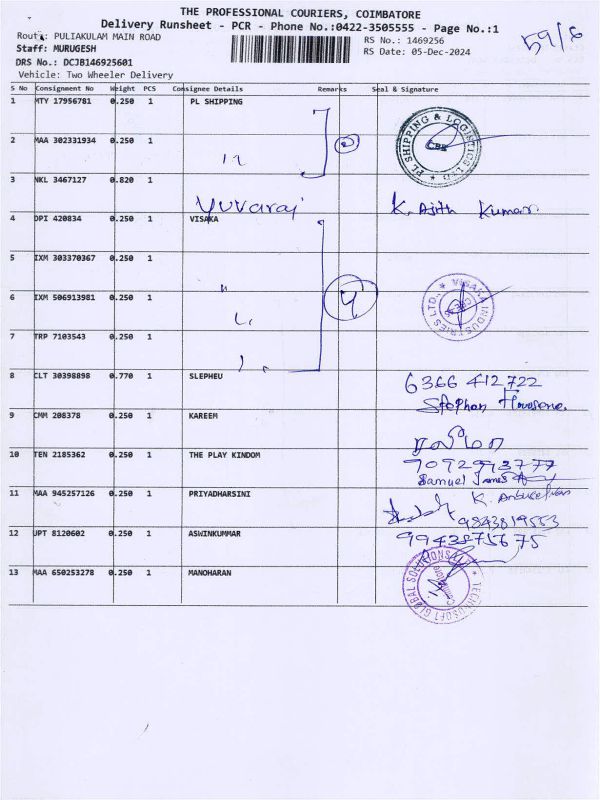 THE PROFESSIONAL COURIERS, COIMBATORE
Delivery Runsheet - PCR - Phone No.:0422-3505555 - Page No.:1
59/6
Route: PULIAKULAM MAIN ROAD
RS No.: 1469256
Staff: MURUGESH
RS Date: 05-Dec-2024
DRS No.: DCJB146925601
Vehicle: Two Wheeler Delivery
S No Consignment No Weight PCS Consignee Details Remarks Seal & Signature
1 MTY 17956781 0.250 1 PL SHIPPING
PL SHIPPING & LOGISTICS LTD
CBE
2 MAA 302331934 0.250 1
3 NKL 3467127 0.820 1
Yuvaraj K. Ajith Kumar.
4 DPI 420834 0.250 1 VISAKA
5 IXM 303370367 0.250 1
6 IXM 506913981 0.250 1
4
VISAKA INDUSTRIES LTD.,
7 TRP 7103543 0.250 1
8 CLT 30398898 0.770 1 SLEPHEU
6366 412722
Stephan
9 CMM 208378 0.250 1 KAREEM
10 TEN 2185362 0.250 1 THE PLAY KINDOM
9092993777
Samuel James
11 MAA 945257126 0.250 1 PRIYADHARSINI
9843819553
12 UPT 8120602 0.250 1 ASWINKUMMAR
9943875675
13 MAA 650253278 0.250 1 MANOHARAN
TECHNOSOFT GLOBAL SOLUTIONS
Coimbatore